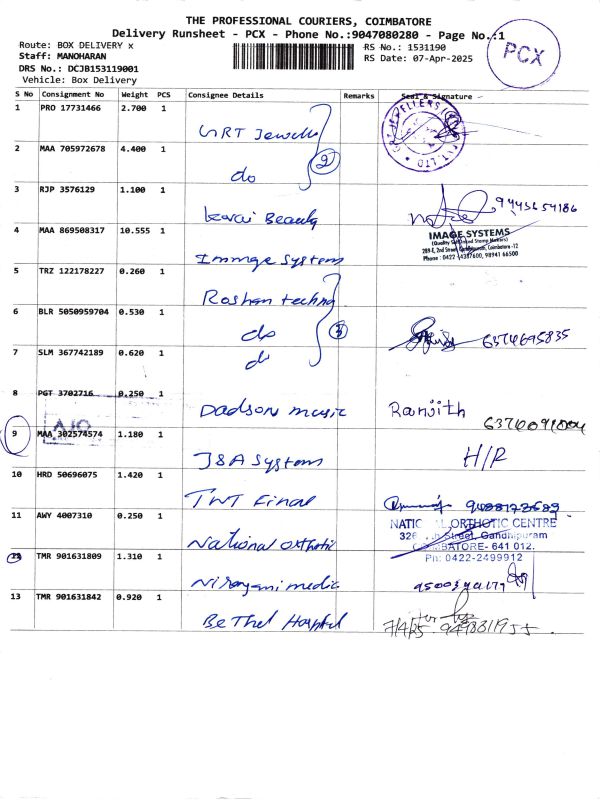 THE PROFESSIONAL COURIERS, COIMBATORE
Delivery Runsheet - PCX - Phone No.:9047080280 - Page No.:1
PCX
Route: BOX DELIVERY x
Staff: MANOHARAN
DRS No.: DCJB153119001
Vehicle: Box Delivery
RS No.: 1531190
RS Date: 07-Apr-2025
S No Consignment No Weight PCS Consignee Details Remarks Seal & Signature
1 PRO 17731466 2.700 1 GRT Jewells
2 MAA 705972678 4.400 1 do
2
3 RJP 3576129 1.100 1 Beauty 9443654186
4 MAA 869508317 10.555 1 Immage Systems
IMAGE SYSTEMS
Coimbatore -12
Phone : 0422 -4387600, 98941 66500
5 TRZ 122178227 0.260 1 Roshan techno
6 BLR 5050959704 0.530 1 do 6374695835
7 SLM 367742189 0.620 1 do
3
8 PGT 3702716 0.250 1 Dadson music Ranjith
9 MAA 302574574 1.180 1 J&A Systems H/R
10 HRD 50696075 1.420 1 TNT Final
11 AWY 4007310 0.250 1 National orthotic
NATIONAL ORTHOTIC CENTRE
Street, Gandhipuram
COIMBATORE- 641 012.
Ph: 0422-2499912
12 TMR 901631809 1.310 1 medic
13 TMR 901631842 0.920 1 BeThel Hospital 7/4/25